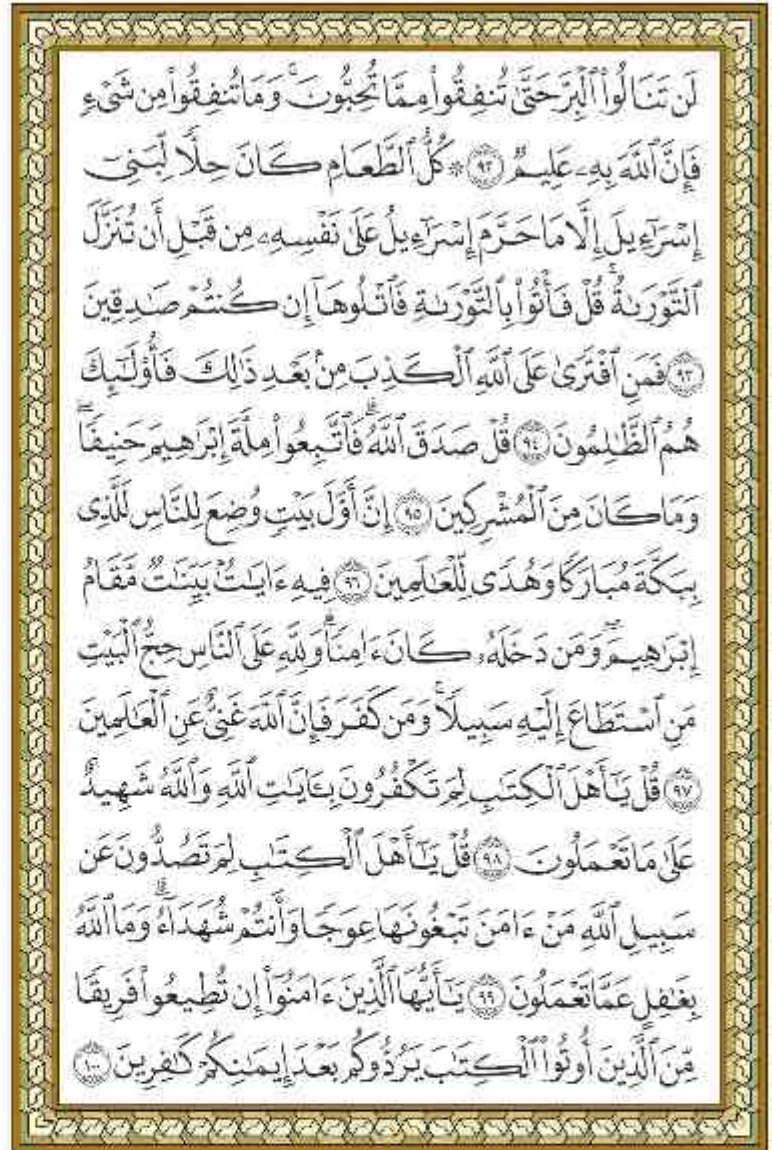 لَن تَنَالُوا۟ ٱلْبِرَّ حَتَّىٰ تُنفِقُوا۟ مِمَّا تُحِبُّونَ ۚ وَمَا تُنفِقُوا۟ مِن شَىْءٍ
فَإِنَّ ٱللَّهَ بِهِۦ عَلِيمٌ ٩٢ ۞ كُلُّ ٱلطَّعَامِ كَانَ حِلًّا لِّبَنِىٓ
إِسْرَٰٓءِيلَ إِلَّا مَا حَرَّمَ إِسْرَٰٓءِيلُ عَلَىٰ نَفْسِهِۦ مِن قَبْلِ أَن تُنَزَّلَ
ٱلتَّوْرَىٰةُ ۗ قُلْ فَأْتُوا۟ بِٱلتَّوْرَىٰةِ فَٱتْلُوهَآ إِن كُنتُمْ صَٰدِقِينَ
٩٣ فَمَنِ ٱفْتَرَىٰ عَلَى ٱللَّهِ ٱلْكَذِبَ مِنۢ بَعْدِ ذَٰلِكَ فَأُو۟لَٰٓئِكَ
هُمُ ٱلظَّٰلِمُونَ ٩٤ قُلْ صَدَقَ ٱللَّهُ ۗ فَٱتَّبِعُوا۟ مِلَّةَ إِبْرَٰهِيمَ حَنِيفًا ۖ
وَمَا كَانَ مِنَ ٱلْمُشْرِكِينَ ٩٥ إِنَّ أَوَّلَ بَيْتٍ وُضِعَ لِلنَّاسِ لَلَّذِى
بِبَكَّةَ مُبَارَكًا وَهُدًى لِّلْعَٰلَمِينَ ٩٦ فِيهِ ءَايَٰتٌۢ بَيِّنَٰتٌ مَّقَامُ
إِبْرَٰهِيمَ ۖ وَمَن دَخَلَهُۥ كَانَ ءَامِنًا ۗ وَلِلَّهِ عَلَى ٱلنَّاسِ حِجُّ ٱلْبَيْتِ
مَنِ ٱسْتَطَاعَ إِلَيْهِ سَبِيلًا ۚ وَمَن كَفَرَ فَإِنَّ ٱللَّهَ غَنِىٌّ عَنِ ٱلْعَٰلَمِينَ
٩٧ قُلْ يَٰٓأَهْلَ ٱلْكِتَٰبِ لِمَ تَكْفُرُونَ بِـَٔايَٰتِ ٱللَّهِ وَٱللَّهُ شَهِيدٌ
عَلَىٰ مَا تَعْمَلُونَ ٩٨ قُلْ يَٰٓأَهْلَ ٱلْكِتَٰبِ لِمَ تَصُدُّونَ عَن
سَبِيلِ ٱللَّهِ مَنْ ءَامَنَ تَبْغُونَهَا عِوَجًا وَأَنتُمْ شُهَدَآءُ ۗ وَمَا ٱللَّهُ
بِغَٰفِلٍ عَمَّا تَعْمَلُونَ ٩٩ يَٰٓأَيُّهَا ٱلَّذِينَ ءَامَنُوٓا۟ إِن تُطِيعُوا۟ فَرِيقًا
مِّنَ ٱلَّذِينَ أُوتُوا۟ ٱلْكِتَٰبَ يَرُدُّوكُم بَعْدَ إِيمَٰنِكُمْ كَٰفِرِينَ ١٠٠